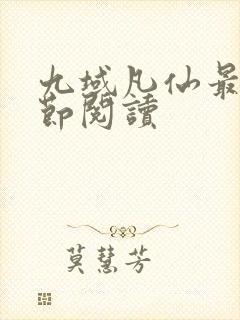 九域凡仙最
節閱讀
莫慧芳